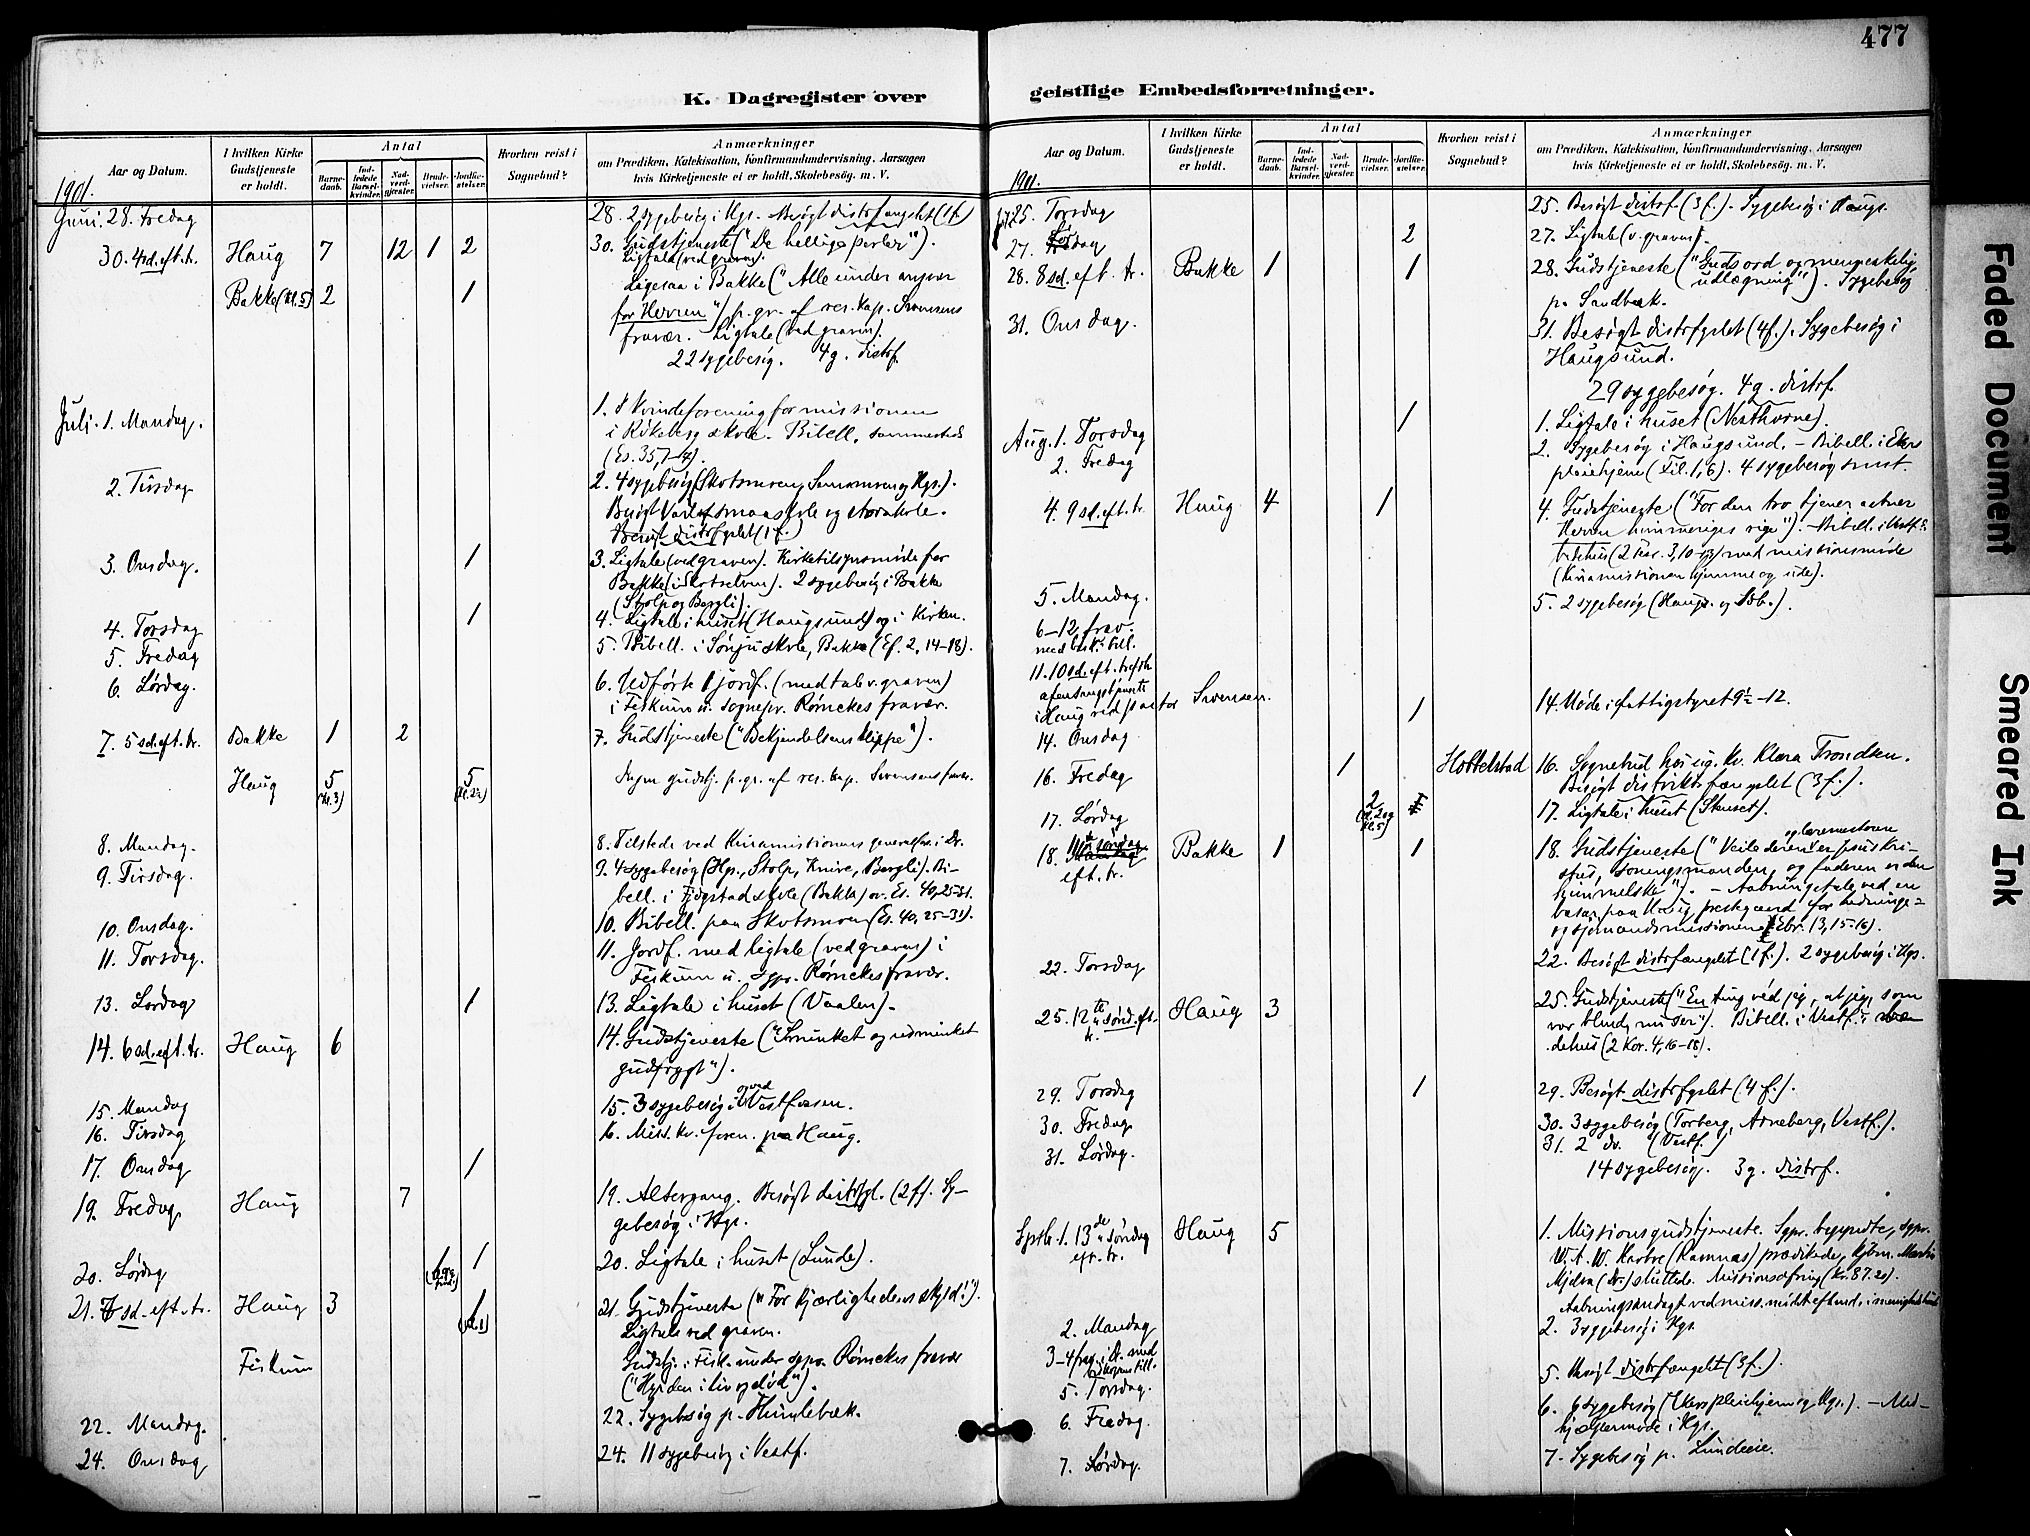 477
K. Dagregister over geistlige Embedsforretninger.
Aar og Datum.
I hvilken Kirke Gudstjeneste er holdt.
Antal
Barne-daab.
Ind-ledede Barsel-kvinder.
Nad-verd-gjester.
Brude-vielser.
Jordfæ-stelser.
Hvorhen reist i Sognebud?
Anmærkninger
om Prædiken, Katekisation, Konfirmandundervisning. Aarsagen
hvis Kirketjeneste ei er holdt, Skolebesøg. m. V.
1901.
Juni. 28. Fredag 28. 2 sygebesøg i Hgs. Besøgt distrfængslet (1 f.)
30. 4 sd. eft. tr. Haug 7 12 1 2 30. Gudstjeneste ("De hellige perler").
Ligtale (ved graven).
Bakke (kl. 5) 2 1 Ligesaa i Bakke ("Alle under ansvar
for Herren") p. gr. af res. kap. Svensens
fravær. Ligtale (ved graven).
22 sygebesøg. 4 g. distrf.
Juli. 1. Mandag. 1. Kvindeforening for missionen
i Røkeberg skole. Bibell. sammesteds
(Es. 35, 1-4).
2. Tirsdag 2. 4 sygebesøg (Skotsmoen, Semsmoen og Hgs.).
Besøgt smaaskole og storskole.
Besøgt distrfgslet (1 f.)
3. Onsdag. 1 3. Ligtale (ved graven). Kirketilsynsmøde for
Bakke (i Skotselven). 2 sygebesøg i Bakke
(Stolp og Bergli).
4. Torsdag 1 4. Ligtale i huset (Haugsund) og i Kirken.
5. Fredag 5. Bibell. i Sønju skole, Bakke (Ef. 2, 14-18).
6. Lørdag. 6. Udførte 1 jordf. (med tale v. graven)
i Fiskum u. sognepr. Rømckes fravær.
7. 5 sd. eft. tr. Bakke 1 2 7. Gudstjeneste ("Bekjendelsens klippe").
Haug 5 (kl. 3) 5 Ingen gudstj. p. gr. af res. kap. Svensens fravær.
8. Mandag. 8. Tilstede ved Kinamissionens generalfors. i Dr.
9. Tirsdag. 9. 4 sygebesøg (Hgs., Stolp, Knive, Bergli). Bi-
bell. i skole (Bakke) ov. Es. 40, 25-31.
10. Onsdag. 10. Bibell. paa Skotsmoen (Es. 40, 25-31).
11. Torsdag. 11. Jordf. med ligtale (ved graven) i
Fiskum u. sgpr. Rømckes fravær.
13. Lørdag 1 13. Ligtale i huset (Vaalen).
14. 6 sd. eft. tr. Haug 6 14. Gudstjeneste ("Sminket og usminket
gudfrygt").
15. Mandag 15. 3 sygebesøg i og ved Vestfossen.
16. Tirsdag 16. Miss. kv. foren. paa Haug.
17. Onsdag 1
19. Fredag Haug 7 19. Altergang. Besøgt distrfgl. (2 f). Sy-
gebesøg i Hgs.
20. Lørdag 1 1 20. Ligtale i huset (Lunde).
21. 7 sd. eft. tr. Haug 3 1 (kl. 1) 21. Gudstjeneste ("For kjærlighedens skyld!").
Ligtale ved graven.
Fiskum Gudstj. i Fisk. under sgpr. Rømckes fravær
("Hyrden i liv og død").
22. Mandag. 22. Sygebesøg p. Humlebæk.
24. Onsdag 24. 11 sygebesøg i Vestf.
Aar og Datum.
I hvilken Kirke Gudstjeneste er holdt.
Antal
Barne-daab.
Ind-ledede Barsel-kvinder.
Nad-verd-gjester.
Brude-vielser.
Jordfæ-stelser.
Hvorhen reist i Sognebud?
Anmærkninger
om Prædiken, Katekisation, Konfirmandundervisning. Aarsagen
hvis Kirketjeneste ei er holdt, Skolebesøg. m. V.
1901.
25. Torsdag 25. Besøgt distrf. (3 f.). Sygebesøg i Haugs.
27. Lørdag 2 27. Ligtale (v. graven).
28. 8 sd. eft. tr. Bakke 1 1 28. Gudstjeneste ("Guds ord og menneskelig
udlægning"). Sygebesøg
p. Sandbæk.
31. Onsdag. 31. Besøgt distrfgslet (4 f.). Sygebesøg i
Haugsund.
29 sygebesøg. 4 g. distrf.
Aug. 1. Torsdag 1 1. Ligtale i huset (Nesthorne).
2. Fredag 2. Sygebesøg i Haugsund. - Bibell. i Ekers
pleiehjem (Fil. 1, 6). 4 sygebesøg smst.
4. 9 sd. eft. tr. Haug 4 1 4. Gudstjeneste ("For den tro tjener aabner
Herren himmeriges rige"). - Bibell. i Vestf.s
bedehus (2 Kor. 3, ) med missionsmøde
(Kinamissionen hjemme og ude).
5. Mandag. 5. 2 sygebesøg (Haugs. og Seb.).
6-12 frav.
med bisk. till.
11. 10 sd. eft. tref.
aftensangstjeneste
i Haug ved pastor Svensen.
14. Onsdag 1 14. Møde i fattigstyret 9½-12.
16. Fredag 1 Hobbelstad 16. Sognebud hos ug. kv. Klara Trondsen.
Besøgt distriktsfængslet (3 f.).
17. Lørdag 2 (kl. 2 og kl. 5) 17. Ligtale i huset (Stenset).
18. søndag eft. tr. Bakke 1 1 18. Gudstjeneste ("Veilederen og læremesteren er Jesus Kri-
stus, soningsmanden, og faderen er den
himmelske"). - Aabningstale ved en
basar paa Haug prestegaard for hedninge-
og sjømandsmissionen (Ebr. 13, 15-16).
22. Torsdag 22. Besøgt distrfængslet (1 f.). 2 sygebesøg i Hgs.
25. 12te sønd. eft. tr. Haug 3 25. Gudstjeneste ("En ting ved jeg, at jeg, som
var blind, nu ser"). Bibell. i Vestf.s
dehus (2 Kor. 4, 16-18).
29. Torsdag 1 29. Besøgt distrfgslet (4 f.).
30. Fredag 30. 3 sygebesøg (Torberg, Arneberg, Vestf.).
31. Lørdag. 31. 2 do. (Vestf.)
14 sygebesøg. 3 g. distrf.
Septb. 1. 13de søndag eft. tr. Haug 5 1. Missionsgudstjeneste. Sgpr. begyndte, sgpr.
W. A. W. (Ramnæs) prædikede, Martin
Mjelva (Dr.) sluttede. Missionsofring (kr. 87.20).
Aabningsandagt ved miss. mødet efterm. i
2. Mandag 2. 3 sygebesøg i Hgs.
3-4 frav. i Dr. med
biskopens till.
5. Torsdag. 5. Besøgt distrfængslet (3 f.).
6. Fredag. 6. 6 sygebesøg (Ekers pleiehjem og Hgs.). - Med-
hjælpermøde i Hgs.
7. Lørdag. 7. Sygebesøg p. Lundeeie.
Faded Document
Smeared Ink